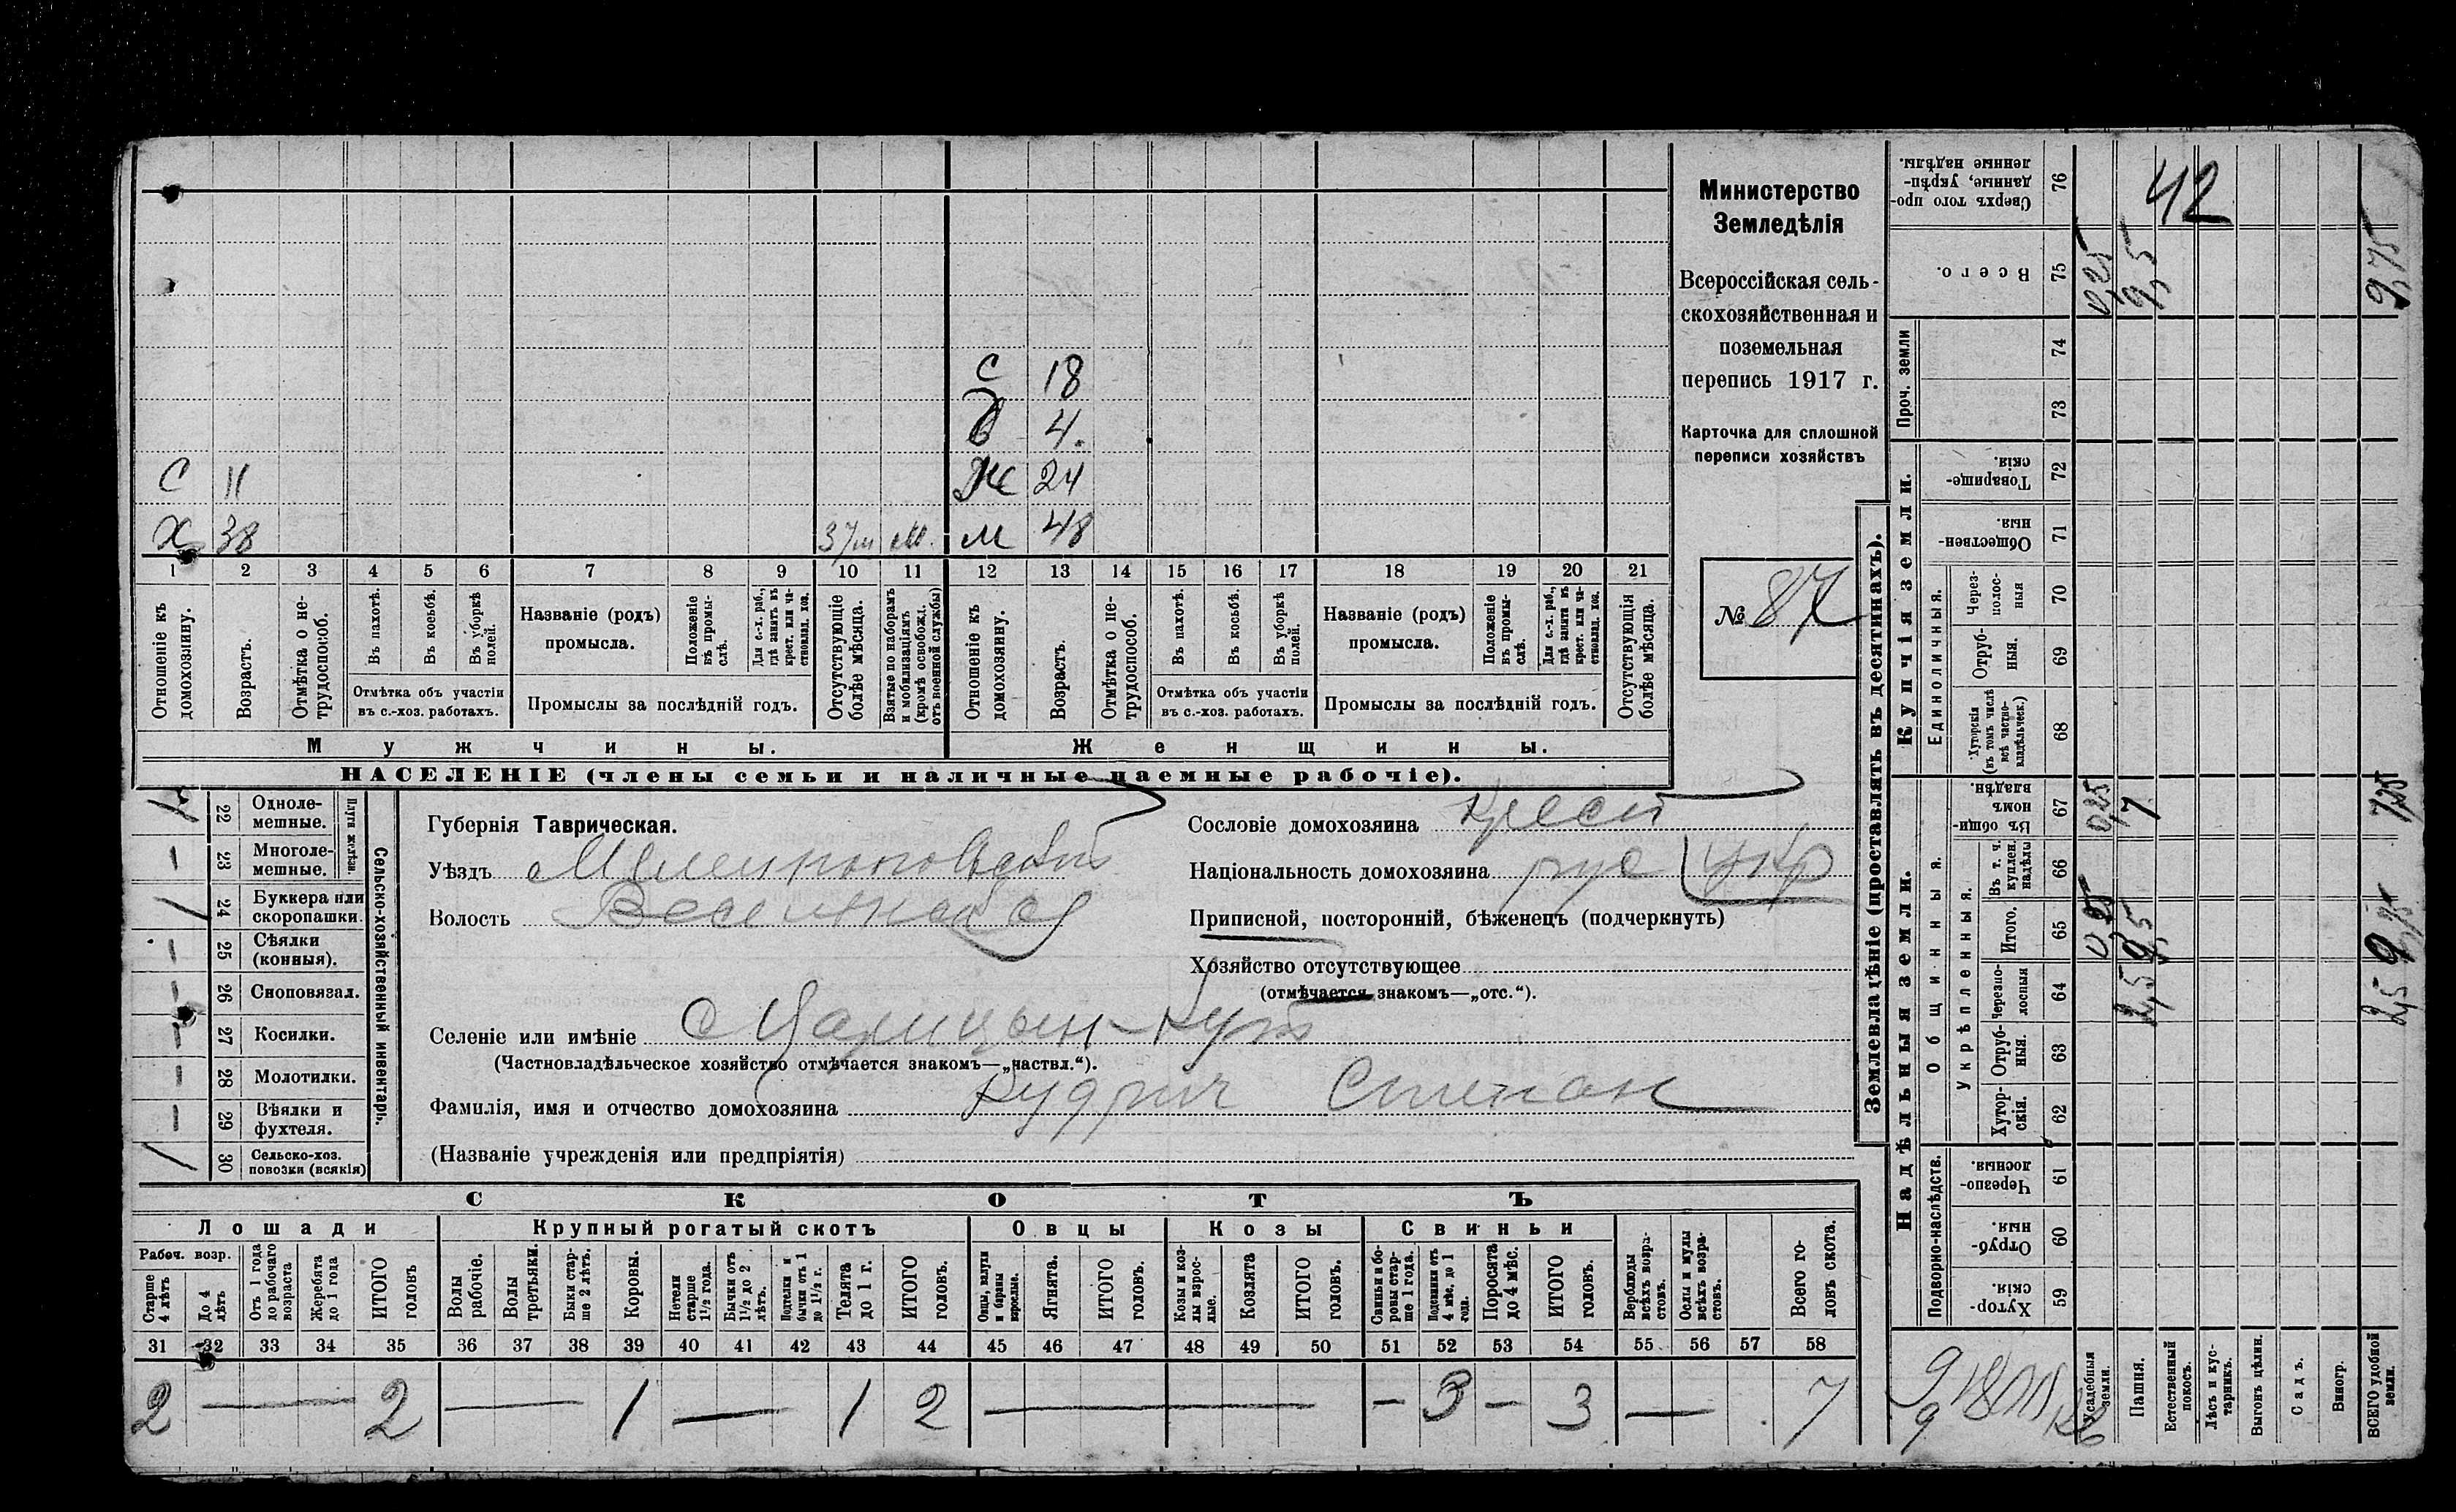 С 18
В 4.
С 11 Ж 24
Х 38 м 48
1 2 3 4 5 6 7 8 9 10 11 12 13 14 15 16 17 18 19 20 21
Отношеніе къ домохозяину.
Возрастъ.
Отмѣтка о не-трудоспособ.
Въ пахотѣ.
Въ косьбѣ.
Въ уборкѣ полей.
Отмѣтка объ участіи
въ с.-хоз. работахъ.
Названіе (родъ)
промысла.
Положеніе въ промы-слѣ.
Для с.-х. раб., гдѣ занятъ въ крест. или ча-стновлад. хоз.
Промыслы за послѣдній годъ.
Отсутствующіе болѣе мѣсяца.
Взятые по наборамъ и мобилизаціямъ (кромѣ освобожд. отъ военной службы)
Отношеніе къ домохозяину.
Возрастъ.
Отмѣтка о не-трудоспособ.
Въ пахотѣ.
Въ косьбѣ.
Въ уборкѣ полей.
Отмѣтка объ участіи
въ с.-хоз. работахъ.
Названіе (родъ)
промысла.
Положеніе въ промы-слѣ.
Для с.-х. раб., гдѣ занятъ въ крест. или ча-стновлад. хоз.
Промыслы за послѣдній годъ.
Отсутствующія болѣе мѣсяца.
Мужчины.
Женщины.
НАСЕЛЕНІЕ (члены семьи и наличные наемные рабочіе).
Министерство
Земледѣлія
Всероссійская сель-
скохозяйственная и
поземельная
перепись 1917 г.
Карточка для сплошной
переписи хозяйствъ
№ 87
22 Одноле-мешные.
23 Многоле-мешные.
Плуги желѣзн.
24 Буккера или скоропашки.
25 Сѣялки (конныя).
26 Сноповязал.
27 Косилки.
28 Молотилки.
29 Вѣялки и фухтеля.
30 Сельско-хоз. повозки (всякія)
Сельско-хозяйственный инвентарь.
Губернія Таврическая.
Уѣздъ Мелитопольскій
Волость Веселовская
Селеніе или имѣніе с Царицын-Кут
(Частновладѣльческое хозяйство отмѣчается знакомъ—„частвл.“).
Фамилія, имя и отчество домохозяина Кудрич Степан
(Названіе учрежденія или предпріятія)
Сословіе домохозяина крест
Національность домохозяина рус укр
Приписной, посторонній, бѣженецъ (подчеркнуть)
Хозяйство отсутствующее
(отмѣчается знакомъ—„отс.“).
СКОТЪ
Лошади
Крупный рогатый скотъ
Овцы
Козы
Свиньи
Рабоч. возр.
Старше 4 лѣтъ
До 4 лѣтъ
Отъ 1 года до рабочаго возраста
Жеребята до 1 года
ИТОГО головъ
Волы рабочіе.
Волы третьяки.
Быки стар-ше 2 лѣтъ.
Коровы.
Нетели старше 1½ года.
Бычки отъ 1½ до 2 лѣтъ.
Подтелки и бычки отъ 1 до 1½ г.
Телята до 1 г.
ИТОГО головъ.
Овцы, валухи и бараны взрослые.
Ягнята.
ИТОГО головъ.
Козы и коз-лы взрос-лые.
Козлята
ИТОГО головъ.
Свиньи и бо-ровы стар-ше 1 года.
Подсвинки отъ 4 мѣс. до 1 года.
Поросята до 4 мѣс.
ИТОГО головъ.
Верблюды всѣхъ возра-стовъ.
Ослы и мулы всѣхъ возра-стовъ.
Всего го-ловъ скота.
31 32 33 34 35 36 37 38 39 40 41 42 43 44 45 46 47 48 49 50 51 52 53 54 55 56 57 58
2 — 2 — 1 — 1 2 — - 3 - 3 — 7
Землевладѣніе (проставлять въ десятинахъ).
Купчія земли.
Надѣльныя земли.
Проч. земли
Единоличныя.
Общинныя.
Укрѣпленныя.
Подворно-наслѣдств.
Сверхъ того про-данные, укрѣп-ленные надѣлы. 76 42
Всего. 75 0,25 9,5 9,75
74
73
Товарище-скія. 72
Обществен-ныя. 71
Через-полос-ныя 70
Отруб-ныя. 69
Хуторскія (въ томъ числѣ всѣ частно-владѣльческ.) 68
Въ общи-номъ владѣн. 67 0,25 7 7,25
Въ т. ч. куплен. надѣлы 66
Итого. 65
Черезпо-лосныя 64 2,5 2,5
Отруб-ныя. 63
Хутор-скія. 62
Черезпо-лосныя. 61
Отруб-ныя. 60
Хутор-скія. 59
Усадебныя земли.
Пашня.
Естественный покосъ.
Лѣсъ и кус-тарникъ.
Выгонъ цѣлин.
Садъ.
Виногр.
ВСЕГО удобной земли.